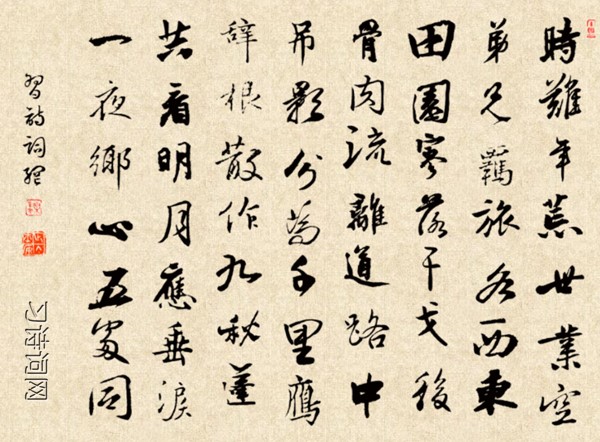 時難年荒世業空
弟兄羈旅各西東
田園寥落干戈後
骨肉流離道路中
吊影分為千里鴈
辭根散作九秋蓬
共看明月應垂淚
一夜鄉心五處同
習詩詞網
习诗词网